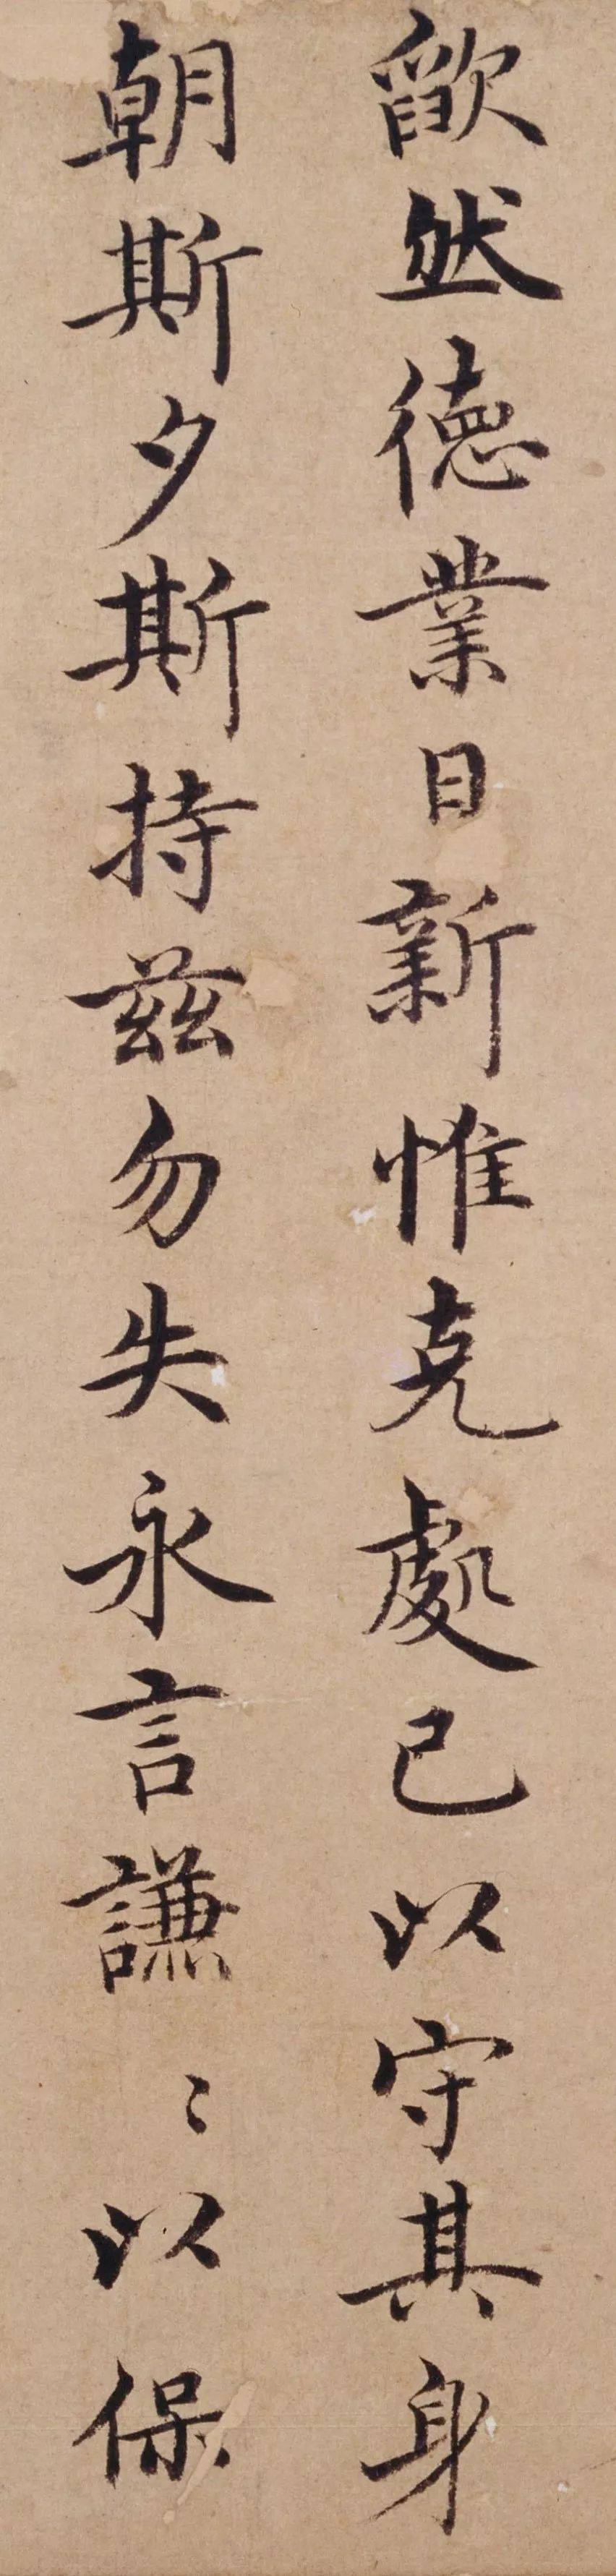 欿然德業日新惟克處己以守其身
朝斯夕斯持兹勿失永言謙〻以保